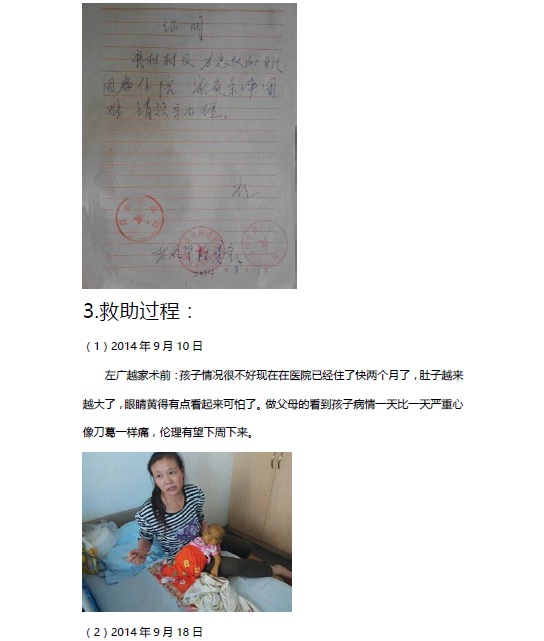 证明
我村村民
因病住院,家庭条件困
难 请
2014
3.救助过程:
(1)2014年9月10日
左广越家术前:孩子情况很不好现在在医院已经住了快两个月了,肚子越来
越大了,眼睛黄得有点看起来可怕了。做父母的看到孩子病情一天比一天严重心
像刀葛一样痛,伦理有望下周下来。
(2)2014年9月18日